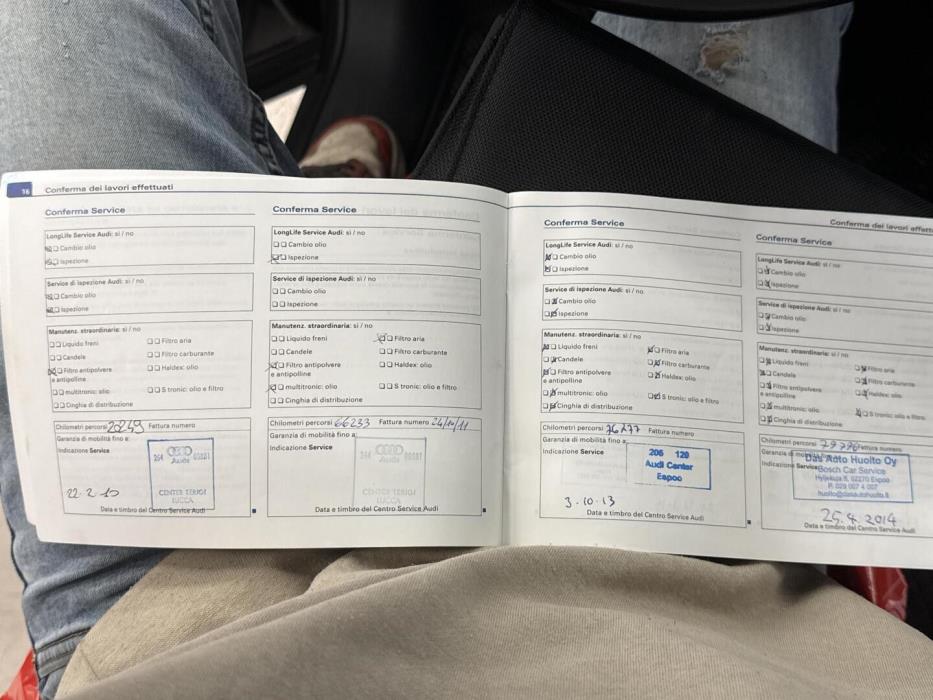 16 Conferma dei lavori effettuati
Conferma Service
LongLife Service Audi: si / no
Cambio olio
Ispezione
Service di ispezione Audi: si / no
Cambio olio
Ispezione
Manutenz. straordinaria: si / no
Liquido freni
Filtro aria
Candele
Filtro carburante
Filtro antipolvere
e antipolline
Haldex: olio
multitronic: olio
S tronic: olio e filtro
Cinghia di distribuzione
Chilometri percorsi 20249 Fattura numero
Garanzia di mobilità fino a:
Indicazione Service
264 Audi
CENTER TERIGI
LUCCA
22.2.10
Data e timbro del Centro Service Audi
Conferma Service
LongLife Service Audi: si / no
Cambio olio
Ispezione
Service di ispezione Audi: si / no
Cambio olio
Ispezione
Manutenz. straordinaria: si / no
Liquido freni
Filtro aria
Candele
Filtro carburante
Filtro antipolvere
e antipolline
Haldex: olio
multitronic: olio
S tronic: olio e filtro
Cinghia di distribuzione
Chilometri percorsi 66233 Fattura numero 24/10/11
Garanzia di mobilità fino a:
Indicazione Service
264 Audi
CENTER TERIGI
LUCCA
Data e timbro del Centro Service Audi
Conferma Service
LongLife Service Audi: si / no
Cambio olio
Ispezione
Service di ispezione Audi: si / no
Cambio olio
Ispezione
Manutenz. straordinaria: si / no
Liquido freni
Filtro aria
Candele
Filtro carburante
Filtro antipolvere
e antipolline
Haldex: olio
multitronic: olio
S tronic: olio e filtro
Cinghia di distribuzione
Chilometri percorsi 76277 Fattura numero
Garanzia di mobilità fino a:
Indicazione Service
206 120
Audi Center
Espoo
3.10.13
Data e timbro del Centro Service Audi
Conferma dei lavori effett
Conferma Service
LongLife Service Audi: si / no
Cambio olio
Ispezione
Service di ispezione Audi: si / no
Cambio olio
Ispezione
Manutenz. straordinaria: si / no
Liquido freni
Filtro aria
Candele
Filtro carburante
Filtro antipolvere
e antipolline
Haldex: olio
multitronic: olio
S tronic: olio e filtro
Cinghia di distribuzione
Chilometri percorsi Fattura numero
Garanzia di
Indicazione Service
Das Auto Huolto Oy
Bosch Car Service
02270 Espoo
25.4.2014
Data e timbro del Centro Service Audi